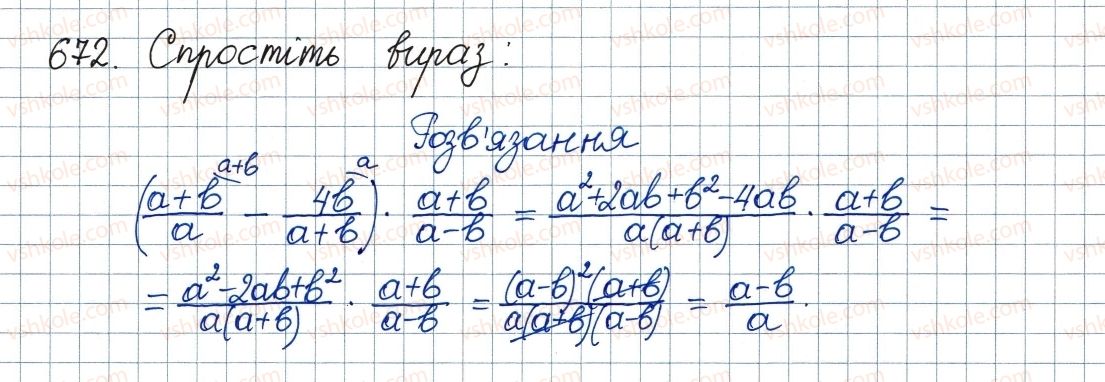 672. Спростіть вираз:
Розв'язання
((a+b)/a^(a+b) − 4b/(a+b)^(a)) · (a+b)/(a−b) = (a²+2ab+b²−4ab)/(a(a+b)) · (a+b)/(a−b) =
= (a²−2ab+b²)/(a(a+b)) · (a+b)/(a−b) = ((a−b)²(a+b))/(a(a+b)(a−b)) = (a−b)/a.